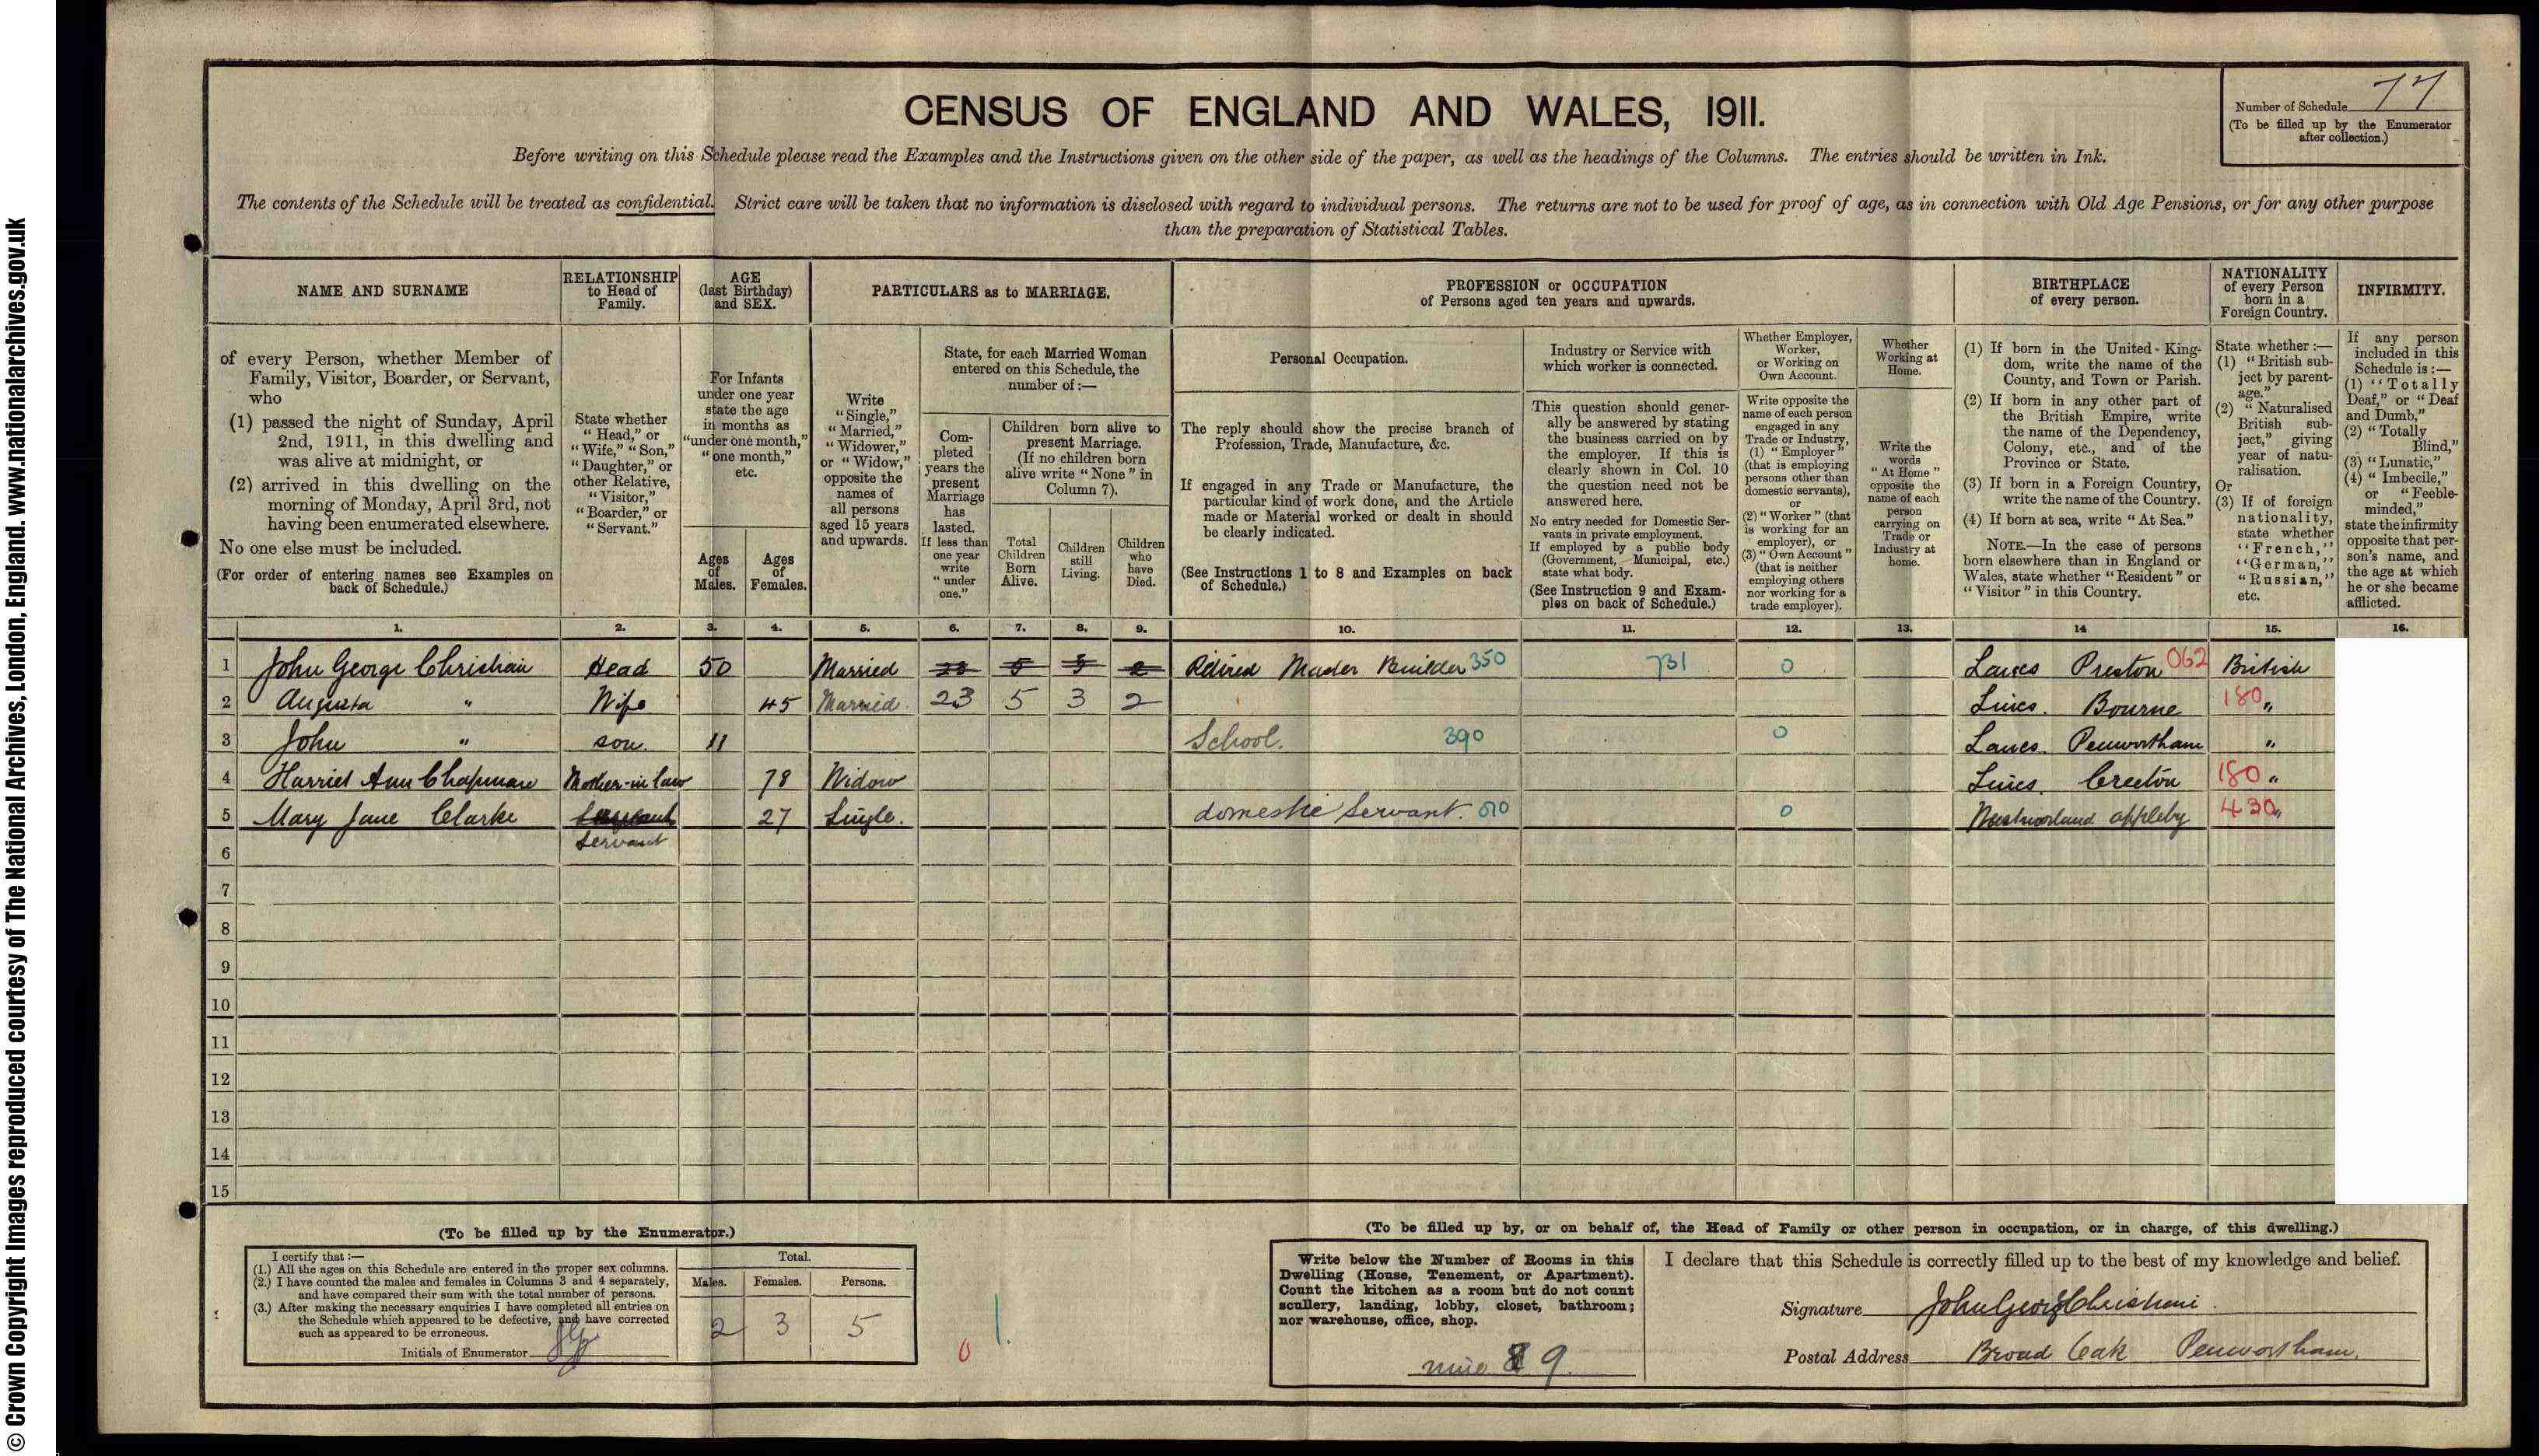 © Crown Copyright Images reproduced courtesy of The National Archives, London, England. www.nationalarchives.gov.uk
CENSUS OF ENGLAND AND WALES, 1911.
Number of Schedule 77
(To be filled up by the Enumerator
after collection.)
Before writing on this Schedule please read the Examples and the Instructions given on the other side of the paper, as well as the headings of the Columns. The entries should be written in Ink.
The contents of the Schedule will be treated as confidential. Strict care will be taken that no information is disclosed with regard to individual persons. The returns are not to be used for proof of age, as in connection with Old Age Pensions, or for any other purpose
than the preparation of Statistical Tables.
NAME AND SURNAME
of every Person, whether Member of
Family, Visitor, Boarder, or Servant,
who
(1) passed the night of Sunday, April
2nd, 1911, in this dwelling and
was alive at midnight, or
(2) arrived in this dwelling on the
morning of Monday, April 3rd, not
having been enumerated elsewhere.
No one else must be included.
(For order of entering names see Examples on
back of Schedule.)
RELATIONSHIP
to Head of
Family.
State whether
"Head," or
"Wife," "Son,"
"Daughter," or
other Relative,
"Visitor,"
"Boarder," or
"Servant."
AGE
(last Birthday)
and SEX.
For Infants
under one year
state the age
in months as
"under one month,"
"one month,"
etc.
Ages
of
Males.
Ages
of
Females.
PARTICULARS as to MARRIAGE.
Write
"Single,"
"Married,"
"Widower,"
or "Widow,"
opposite the
names of
all persons
aged 15 years
and upwards.
State, for each Married Woman
entered on this Schedule, the
number of:—
Com-
pleted
years the
present
Marriage
has
lasted.
If less than
one year
write
"under
one."
Children born alive to
present Marriage.
(If no children born
alive write "None" in
Column 7).
Total
Children
Born
Alive.
Children
still
Living.
Children
who
have
Died.
PROFESSION or OCCUPATION
of Persons aged ten years and upwards.
Personal Occupation.
The reply should show the precise branch of
Profession, Trade, Manufacture, &c.
If engaged in any Trade or Manufacture, the
particular kind of work done, and the Article
made or Material worked or dealt in should
be clearly indicated.
(See Instructions 1 to 8 and Examples on back
of Schedule.)
Industry or Service with
which worker is connected.
This question should gener-
ally be answered by stating
the business carried on by
the employer. If this is
clearly shown in Col. 10
the question need not be
answered here.
No entry needed for Domestic Ser-
vants in private employment.
If employed by a public body
(Government, Municipal, etc.)
state what body.
(See Instruction 9 and Exam-
ples on back of Schedule.)
Whether Employer,
Worker,
or Working on
Own Account.
Write opposite the
name of each person
engaged in any
Trade or Industry,
(1) "Employer"
(that is employing
persons other than
domestic servants),
or
(2) "Worker" (that
is working for an
employer), or
(3) "Own Account"
(that is neither
employing others
nor working for a
trade employer).
Whether
Working at
Home.
Write the
words
"At Home"
opposite the
name of each
person
carrying on
Trade or
Industry at
home.
BIRTHPLACE
of every person.
(1) If born in the United King-
dom, write the name of the
County, and Town or Parish.
(2) If born in any other part of
the British Empire, write
the name of the Dependency,
Colony, etc., and of the
Province or State.
(3) If born in a Foreign Country,
write the name of the Country.
(4) If born at sea, write "At Sea."
NOTE.—In the case of persons
born elsewhere than in England or
Wales, state whether "Resident" or
"Visitor" in this Country.
NATIONALITY
of every Person
born in a
Foreign Country.
State whether:—
(1) "British sub-
ject by parent-
age."
(2) "Naturalised
British sub-
ject," giving
year of natu-
ralisation.
Or
(3) If of foreign
nationality,
state whether
"French,"
"German,"
"Russian,"
etc.
INFIRMITY.
If any person
included in this
Schedule is:—
(1) "Totally
Deaf," or "Deaf
and Dumb,"
(2) "Totally
Blind,"
(3) "Lunatic,"
(4) "Imbecile,"
or "Feeble-
minded,"
state the infirmity
opposite that per-
son's name, and
the age at which
he or she became
afflicted.
1. 2. 3. 4. 5. 6. 7. 8. 9. 10. 11. 12. 13. 14 15. 16.
1 John George Christian Head 50 Married 23 5 3 2 Retired Master Builder 350 731 0 Lancs Preston 062 British
2 Augusta " Wife 45 Married. 23 5 3 2 Lincs. Bourne 180 "
3 John " son. 11 School. 390 0 Lancs. Penwortham "
4 Harriet Ann Chapman Mother-in law 78 Widow Lincs. Creeton 180 "
5 Mary Jane Clarke Servant 27 Single. domestic Servant. 010 0 Westmorland appleby 430 "
Servant
6
7
8
9
10
11
12
13
14
15
(To be filled up by the Enumerator.)
I certify that:—
(1.) All the ages on this Schedule are entered in the proper sex columns.
(2.) I have counted the males and females in Columns 3 and 4 separately,
and have compared their sum with the total number of persons.
(3.) After making the necessary enquiries I have completed all entries on
the Schedule which appeared to be defective, and have corrected
such as appeared to be erroneous.
Initials of Enumerator
Total.
Males. Females. Persons.
2 3 5
0 1.
(To be filled up by, or on behalf of, the Head of Family or other person in occupation, or in charge, of this dwelling.)
Write below the Number of Rooms in this
Dwelling (House, Tenement, or Apartment).
Count the kitchen as a room but do not count
scullery, landing, lobby, closet, bathroom;
nor warehouse, office, shop.
nine 9.
I declare that this Schedule is correctly filled up to the best of my knowledge and belief.
Signature John George Christian
Postal Address Broad Oak Penwortham.